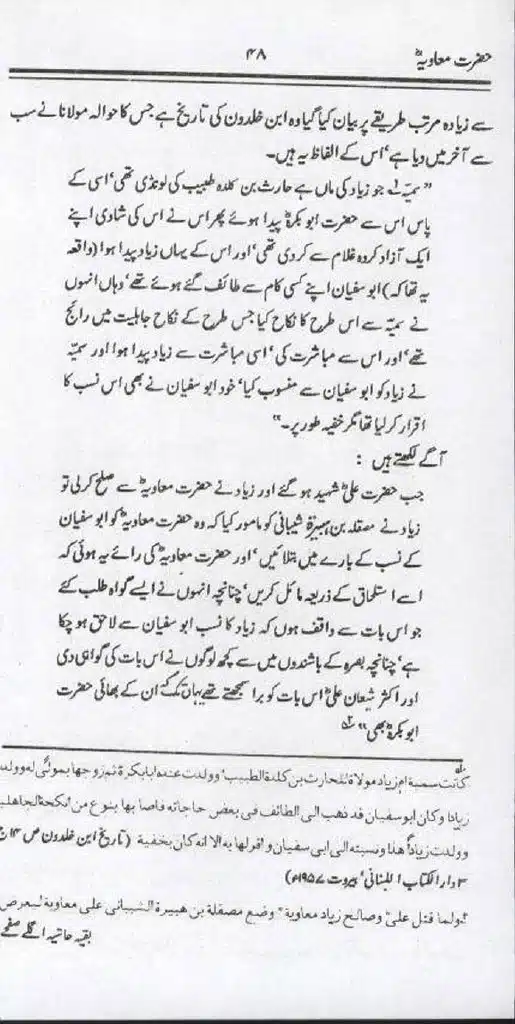 حضرت معاویہؓ
۴۸
سے زیادہ مرتب طریقے پر بیان کیا گیا وہ ابن خلدون کی تاریخ ہے جس کا حوالہ مولانا نے سب
سے آخر میں دیا ہے، اس کے الفاظ یہ ہیں۔
"سمیّہ۱ جو زیاد کی ماں ہے حارث بن کلدہ طبیب کی لونڈی تھی، اسی کے
پاس اس سے حضرت ابو بکرہؓ پیدا ہوئے پھر اس نے اس کی شادی اپنے
ایک آزاد کردہ غلام سے کر دی تھی، اور اس کے یہاں زیاد پیدا ہوا (واقعہ
یہ تھا کہ) ابو سفیان اپنے کسی کام سے طائف گئے ہوئے تھے، وہاں انہوں
نے سمیّہ سے اس طرح کا نکاح کیا جس طرح کے نکاح جاہلیت میں رائج
تھے، اور اس سے مباشرت کی، اسی مباشرت سے زیاد پیدا ہوا اور سمیّہ
نے زیاد کو ابو سفیان سے منسوب کیا، خود ابو سفیان نے بھی اس نسب کا
اقرار کر لیا تھا مگر خفیہ طور پر۔"
آگے لکھتے ہیں :
جب حضرت علیؓ شہید ہو گئے اور زیاد نے حضرت معاویہؓ سے صلح کر لی تو
زیاد نے مصقلہ بن ہبیرۃ شیبانی کو مامور کیا کہ وہ حضرت معاویہؓ کو ابو سفیان
کے نسب کے بارے میں بتلائیں، اور حضرت معاویہؓ کی رائے یہ ہوئی کہ
اسے استلحاق کے ذریعہ مائل کریں، چنانچہ انہوں نے ایسے گواہ طلب کئے
جو اس بات سے واقف ہوں کہ زیاد کا نسب ابو سفیان سے لاحق ہو چکا
ہے، چنانچہ بصرہ کے باشندوں میں سے کچھ لوگوں نے اس بات کی گواہی دی
اور اکثر شیعان علیؓ اس بات کو برا سمجھتے تھے یہاں تک کہ ان کے بھائی حضرت
ابو بکرہؓ بھی"۲
۱ كانت سمية ام زياد مولاة للحارث بن كلدة الطبيب، وولدت عنده ابا بكرة ثم زوجها بمولى له وولدت
زيادا وكان ابو سفيان قد ذهب الى الطائف فى بعض حاجاته فاصابها بنوع من انكحة الجاهلية
وولدت زياداً هذا ونسبته الى ابى سفيان واقر لها به الا انه كان بخفية (تاریخ ابن خلدون ص ۱۴ ج
۳ دارالکتاب اللبنانی، بیروت ۱۹۵۷ء)
۲ ولما قتل علىؓ وصالح زياد معاوية، وضع مصقلة بن هبيرة الشيبانى على معاوية ليعرض
بقیہ حاشیہ اگلے صفحے